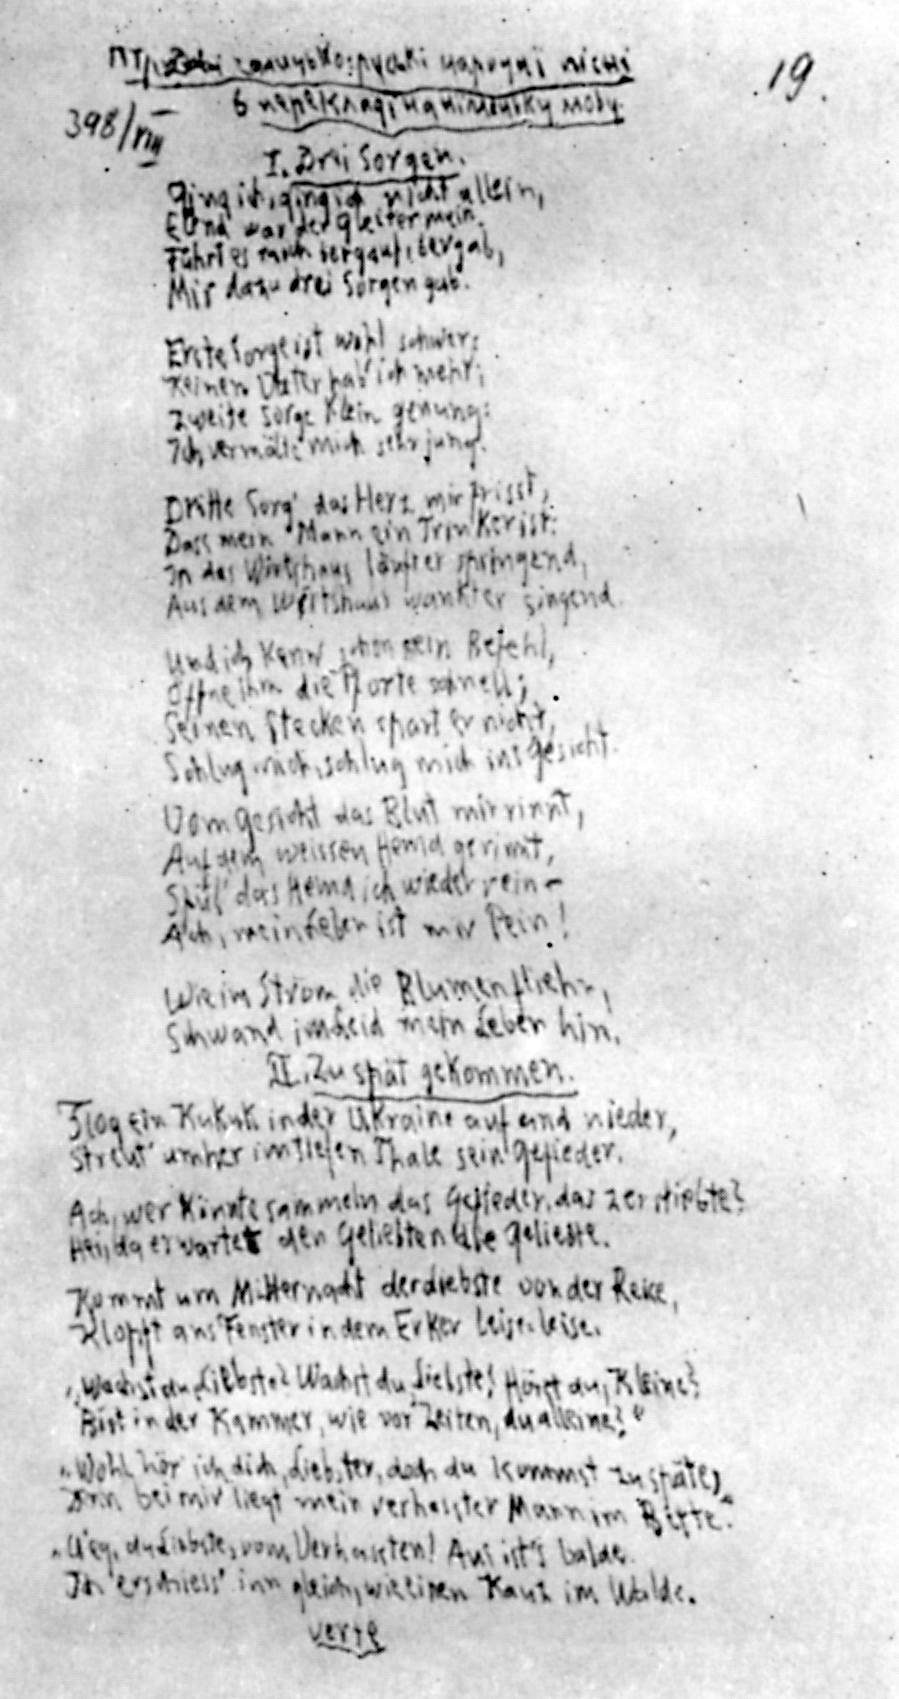 галицько-руські народні пісні
в перекладі на німецьку мову.
19.
398/VIII
I. Drei Sorgen.
Ging ich, ging ich nicht allein,
Elend war der Gleiter mein.
Führt es mich bergauf, bergab,
Mir dazu drei Sorgen gab.
Erste Sorge ist wohl schwer:
Keinen Vater hab' ich mehr;
Zweite Sorge klein genung:
Ich vermält' mich sehr jung.
Dritte Sorg' das Herz mir frisst,
Dass mein Mann ein Trinker ist:
In das Wirtshaus läuft er springend,
Aus dem Wirtshaus wankt er singend.
Und ich kenn' schon sein Befehl,
Öffne ihm die Pforte schnell;
Seinen Stecken spart er nicht,
Schlug mich, schlug mich ins Gesicht.
Vom Gesicht das Blut mir rinnt,
Auf dem weissen Hemd gerinnt,
Spül' das Hemd ich wieder rein –
Ach, mein Leben ist mir Pein!
Wie im Strom die Blumen fliehn,
Schwand im Leid mein Leben hin.
II. Zu spät gekommen.
Flog ein Kukuk in der Ukraine auf und nieder,
Streut' umher im tiefen Thale sein Gefieder.
Ach, wer könnte sammeln das Gefieder, das zerstiebte?
Hei, da erwartet den Geliebten die Geliebte.
Kommt um Mitternacht der Liebste von der Reise,
Klopft ans Fenster in dem Erker leise, leise.
„Wachst du, Liebste? Wachst du, Liebste? Hörst du, Kleine?
Bist in der Kammer, wie vor Zeiten, du alleine?"
„Wohl hör' ich dich, Liebster, doch du kommst zu späte,
Denn bei mir liegt mein verhasster Mann im Bette."
„Weg, du Liebste, vom Verhassten! Aus ist's balde.
Ich erschiess' ihn gleich, wie einen Kauz im Walde.
verte